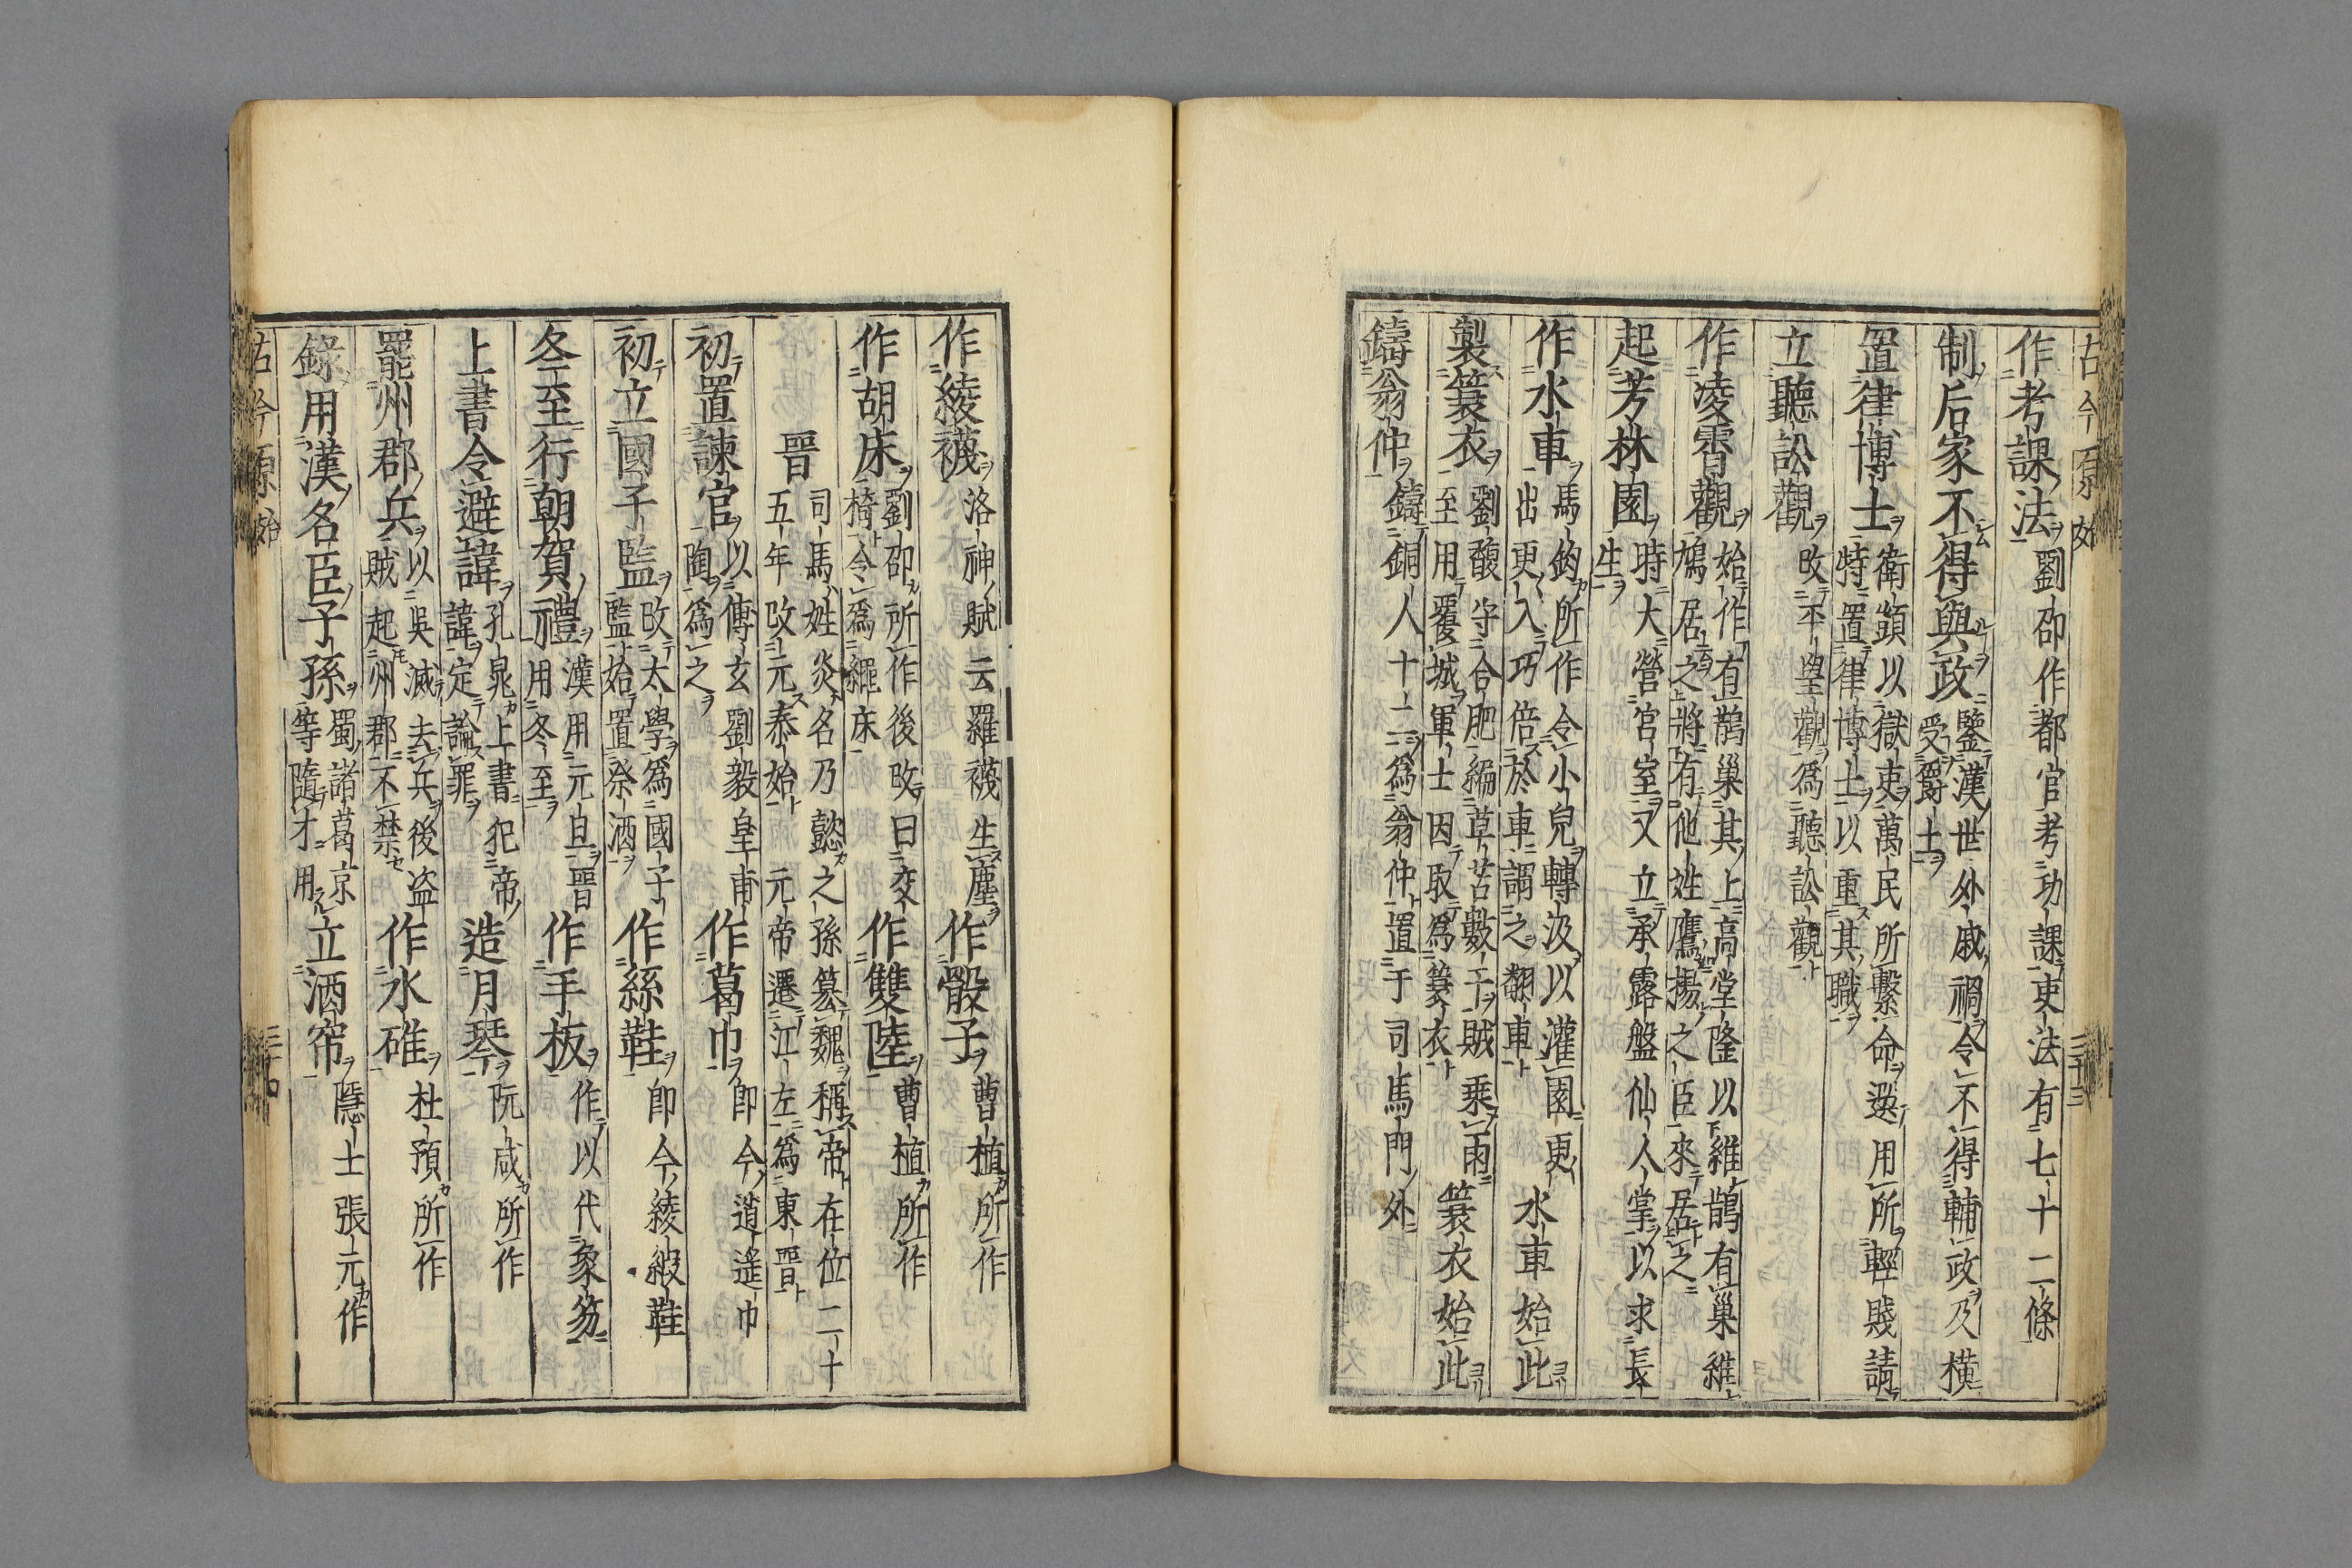 古今原始
三十三
作考課法劉卲作都官考功課吏法有七十二條
制后家不得與政鑒漢世外戚禍令不得輔政及橫
受爵土
置律博士衛顗以獄吏萬民所繫命選用所輕賤請
特置律博士以重其職
立聽訟觀改平望觀爲聽訟觀
作凌霄觀始作有鵲巢其上高堂隆以維鵲有巢維
鳩居之將有他姓鷹揚之臣來居之
起芳林園時大營宮室又立承露盤仙人掌以求長
生
作水車馬鈞所作令小兒轉汲以灌園更
出更入巧倍於車謂之翻車水車始此
製簑衣劉馥守合肥編草苫數千賊乘雨
至用覆城軍士因取爲簑衣簑衣始此
鑄翁仲鑄銅人十二爲翁仲置于司馬門外
作綾襪洛神賦云羅襪生塵
作骰子曹植所作
作胡床劉卲所作後改曰交
椅令爲繩床
作雙陸曹植所作
晉司馬姓炎名乃懿之孫篡魏稱帝在位二十
五年改元泰始元帝遷江左爲東晉
初置諫官以傅玄劉毅皇甫
陶爲之
作葛巾即今逍遙巾
初立國子監改太學爲國子
監始置祭酒
作絲鞋即今綾緞鞋
冬至行朝賀禮漢用元旦晉
用冬至
作手板作以代象笏
上書令避諱孔晁上書犯帝
諱定論罪
造月琴阮咸所作
罷州郡兵以吳滅去兵後盜
賊起州郡不禁
作水碓杜預所作
錄用漢名臣子孫蜀諸葛京
等隨才用
立酒帘隱士張元作
古今原始
三十四